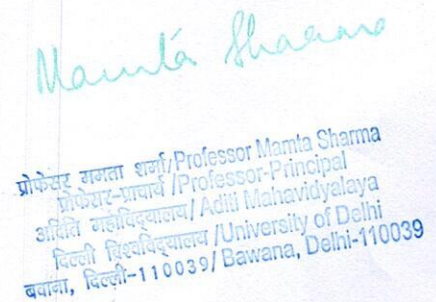 Mamta Sharma
प्रोफेसर ममता शर्मा/Professor Mamta Sharma
प्रोफेसर-प्राचार्य /Professor-Principal
अदिति महाविद्यालय/Aditi Mahavidyalaya
दिल्ली विश्वविद्यालय /University of Delhi
बवाना, दिल्ली-110039/ Bawana, Delhi-110039